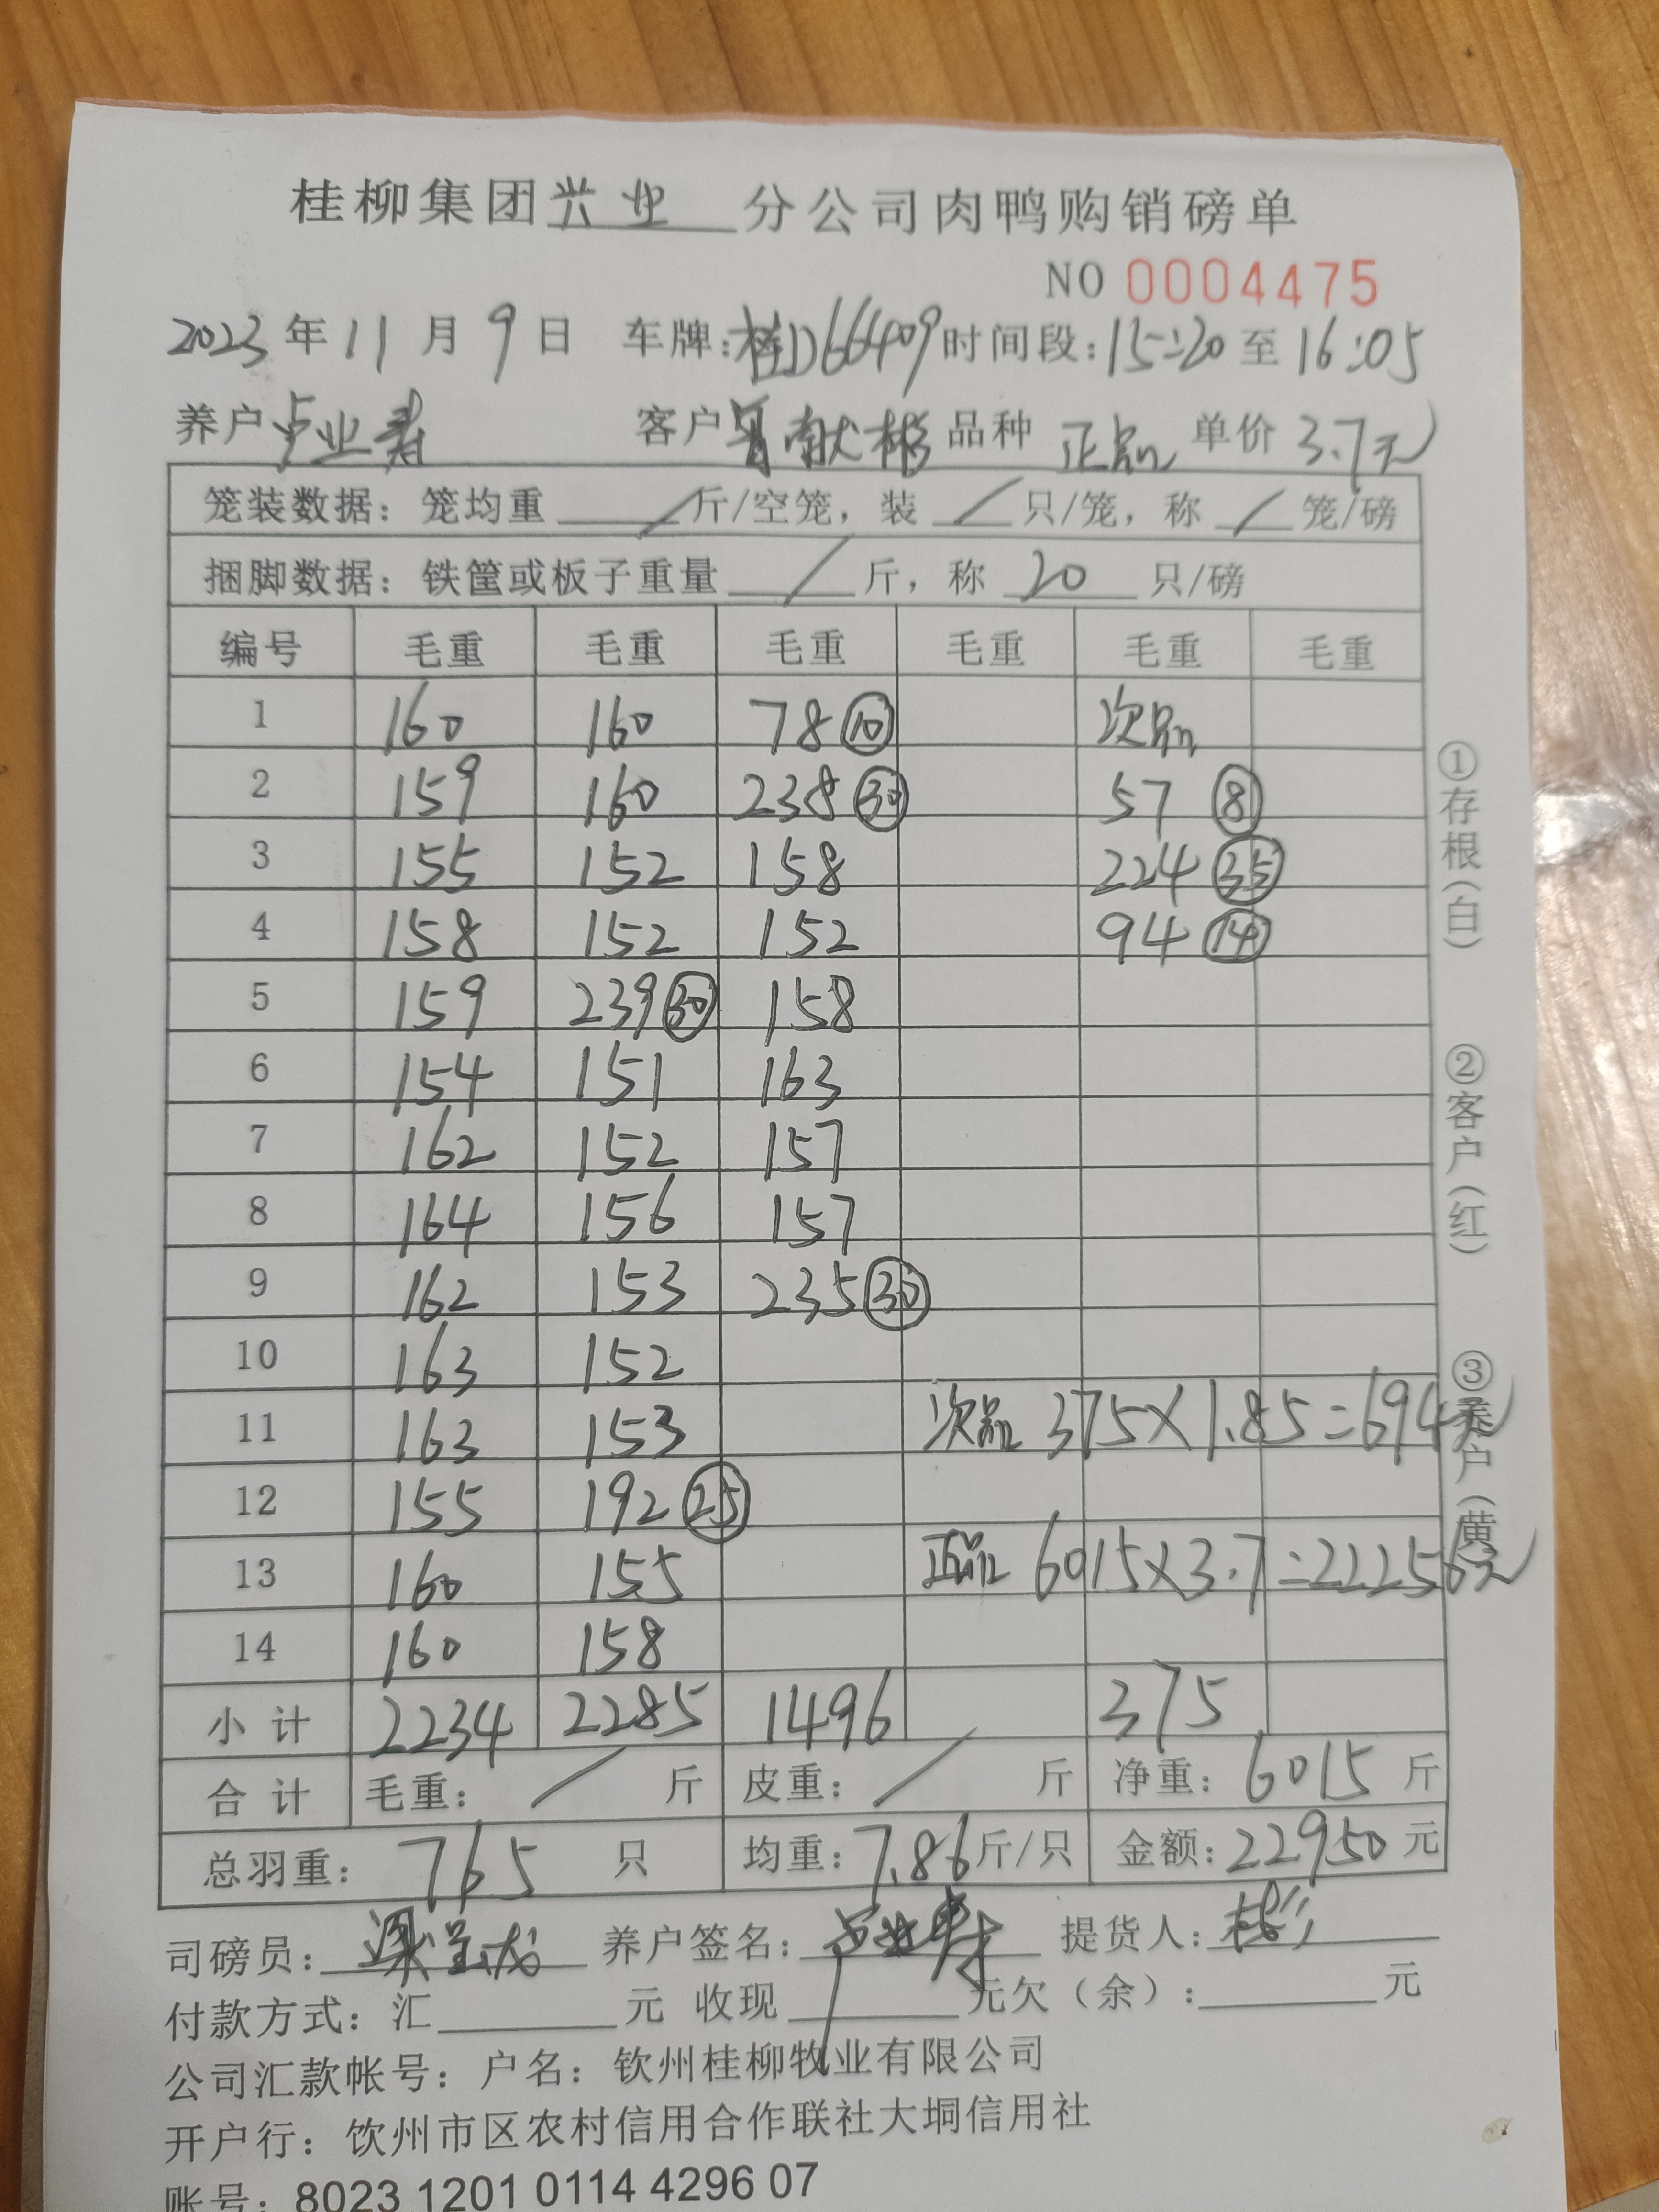 桂柳集团兴业分公司肉鸭购销磅单
NO 0004475
2023年11月9日 车牌:桂D66409 时间段:15:20至16:05
养户 卢业寿 客户 献彬 品种 正品 单价 3.7元
笼装数据：笼均重 / 斤/空笼，装 / 只/笼，称 / 笼/磅
捆脚数据：铁筐或板子重量 / 斤，称 20 只/磅
编号 毛重 毛重 毛重 毛重 毛重 毛重
1 160 160 78 ⑩ 次品
2 159 160 238 ㉚ 57 ⑧
3 155 152 158 224 ㉟
4 158 152 152 94 ⑭
5 159 239 ㉚ 158
6 154 151 163
7 162 152 157
8 164 156 157
9 162 153 235 ㉚
10 163 152
11 163 153 次品 375×1.85=694元
12 155 192 ㉕
13 160 155 正品 6015×3.7=22256元
14 160 158
小计 2234 2285 1496 375
合计 毛重： / 斤 皮重： / 斤 净重：6015 斤
总羽重：765 只 均重：7.86斤/只 金额：22950元
司磅员： 养户签名：卢业寿 提货人：彬
付款方式：汇 元 收现 元欠（余）： 元
公司汇款帐号：户名：钦州桂柳牧业有限公司
开户行：钦州市区农村信用合作联社大垌信用社
账号：8023 1201 0114 4296 07
①存根（白）
②客户（红）
③养户（黄）